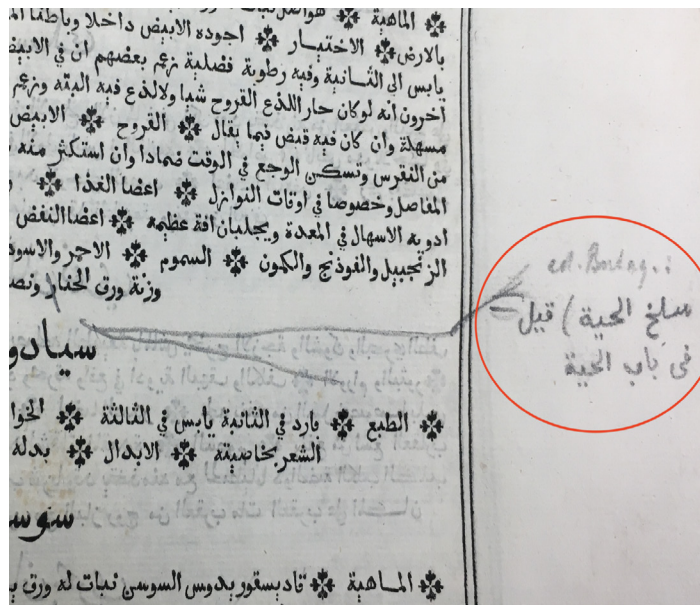 ❊ الماهية ❊
بالارض ❊ الاختيار ❊ اجوده الابيض داخلا وباطنا
يابس الى الثانية وفيه رطوبة فضلية زعم بعضهم ان في الابيض
آخرون أنه لوكان حار اللذع القروح شيا ولالذع فيه البته وزعم
مسهلة وان كان فيه قبض فيما يقال ❊ القروح ❊ الابيض
من النقرس وتسكن الوجع في الوقت ضمادا وان استكثر منه
المفاصل وخصوصا في اوقات النوازل ❊ اعضا الغذا ❊
ادويه الاسهال في المعدة ويجلبان افة عظيمه ❊ اعضا النفض
الزنجبيل والفوذنج والكمون ❊ السموم ❊ الاحمر والاسود
وزنة ورق الحنا ونصف
ed. Boulaq.:
سلخ الحية) قيل
فى باب الحية
سيادو
❊ الطبع ❊ بارد في الثانية يابس في الثالثة ❊ الخوا
الشعر بخاصيته ❊ الابدال ❊ بدله
سوس
❊ الماهية ❊ قاديسقوريدوس السوسن نبات له ورق